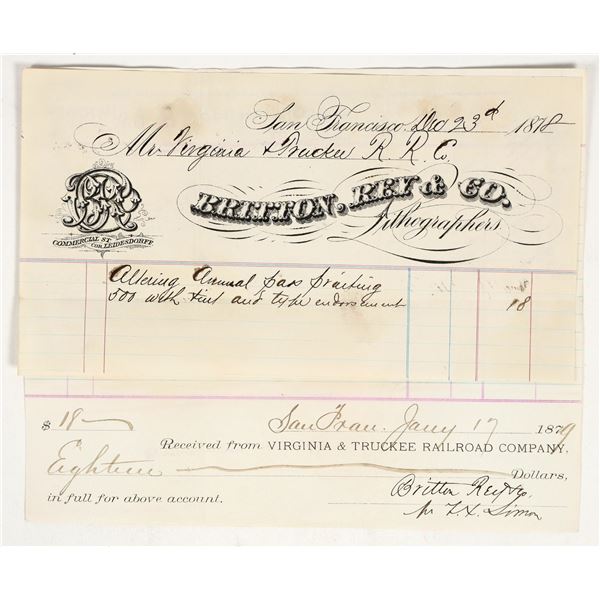 San Francisco, Dec 23d 1878
Mr Virginia & Truckee R R Co.
BRITTON, REY & CO.
Lithographers
COMMERCIAL ST
COR. LEIDESDORFF
Altering Annual pass printing
500 with tint and type endorsement 18
$ 18 San Fran. Jany 17 1879
Received from VIRGINIA & TRUCKEE RAILROAD COMPANY,
Eighteen Dollars,
in full for above account.
Britton Rey & Co.